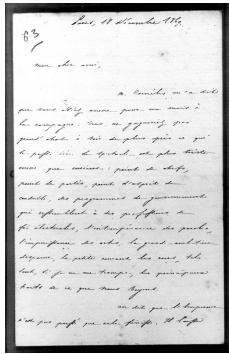 63
Paris, 18 Décembre 1869.
mon cher ami,
m'a dit
que vous étiez encore pour un mois à
la campagne. Vous ne gagneriez pas
grand chose à voir de plus près ce qui
se passe ici. Le spectacle est plus triste
encore que curieux : point de chefs,
point de partis, point d'esprit de
conduite, des programmes de gouvernement
qui ressemblent à des professions de
foi électorales, l'intempérance des paroles,
l'impuissance des actes, la grande ambition
disparue, la petite
tout, si je ne me trompe, les principaux
traits de ce que nous
on dit que l'Empereur
n'est pas pressé que cela finisse. Il laisse